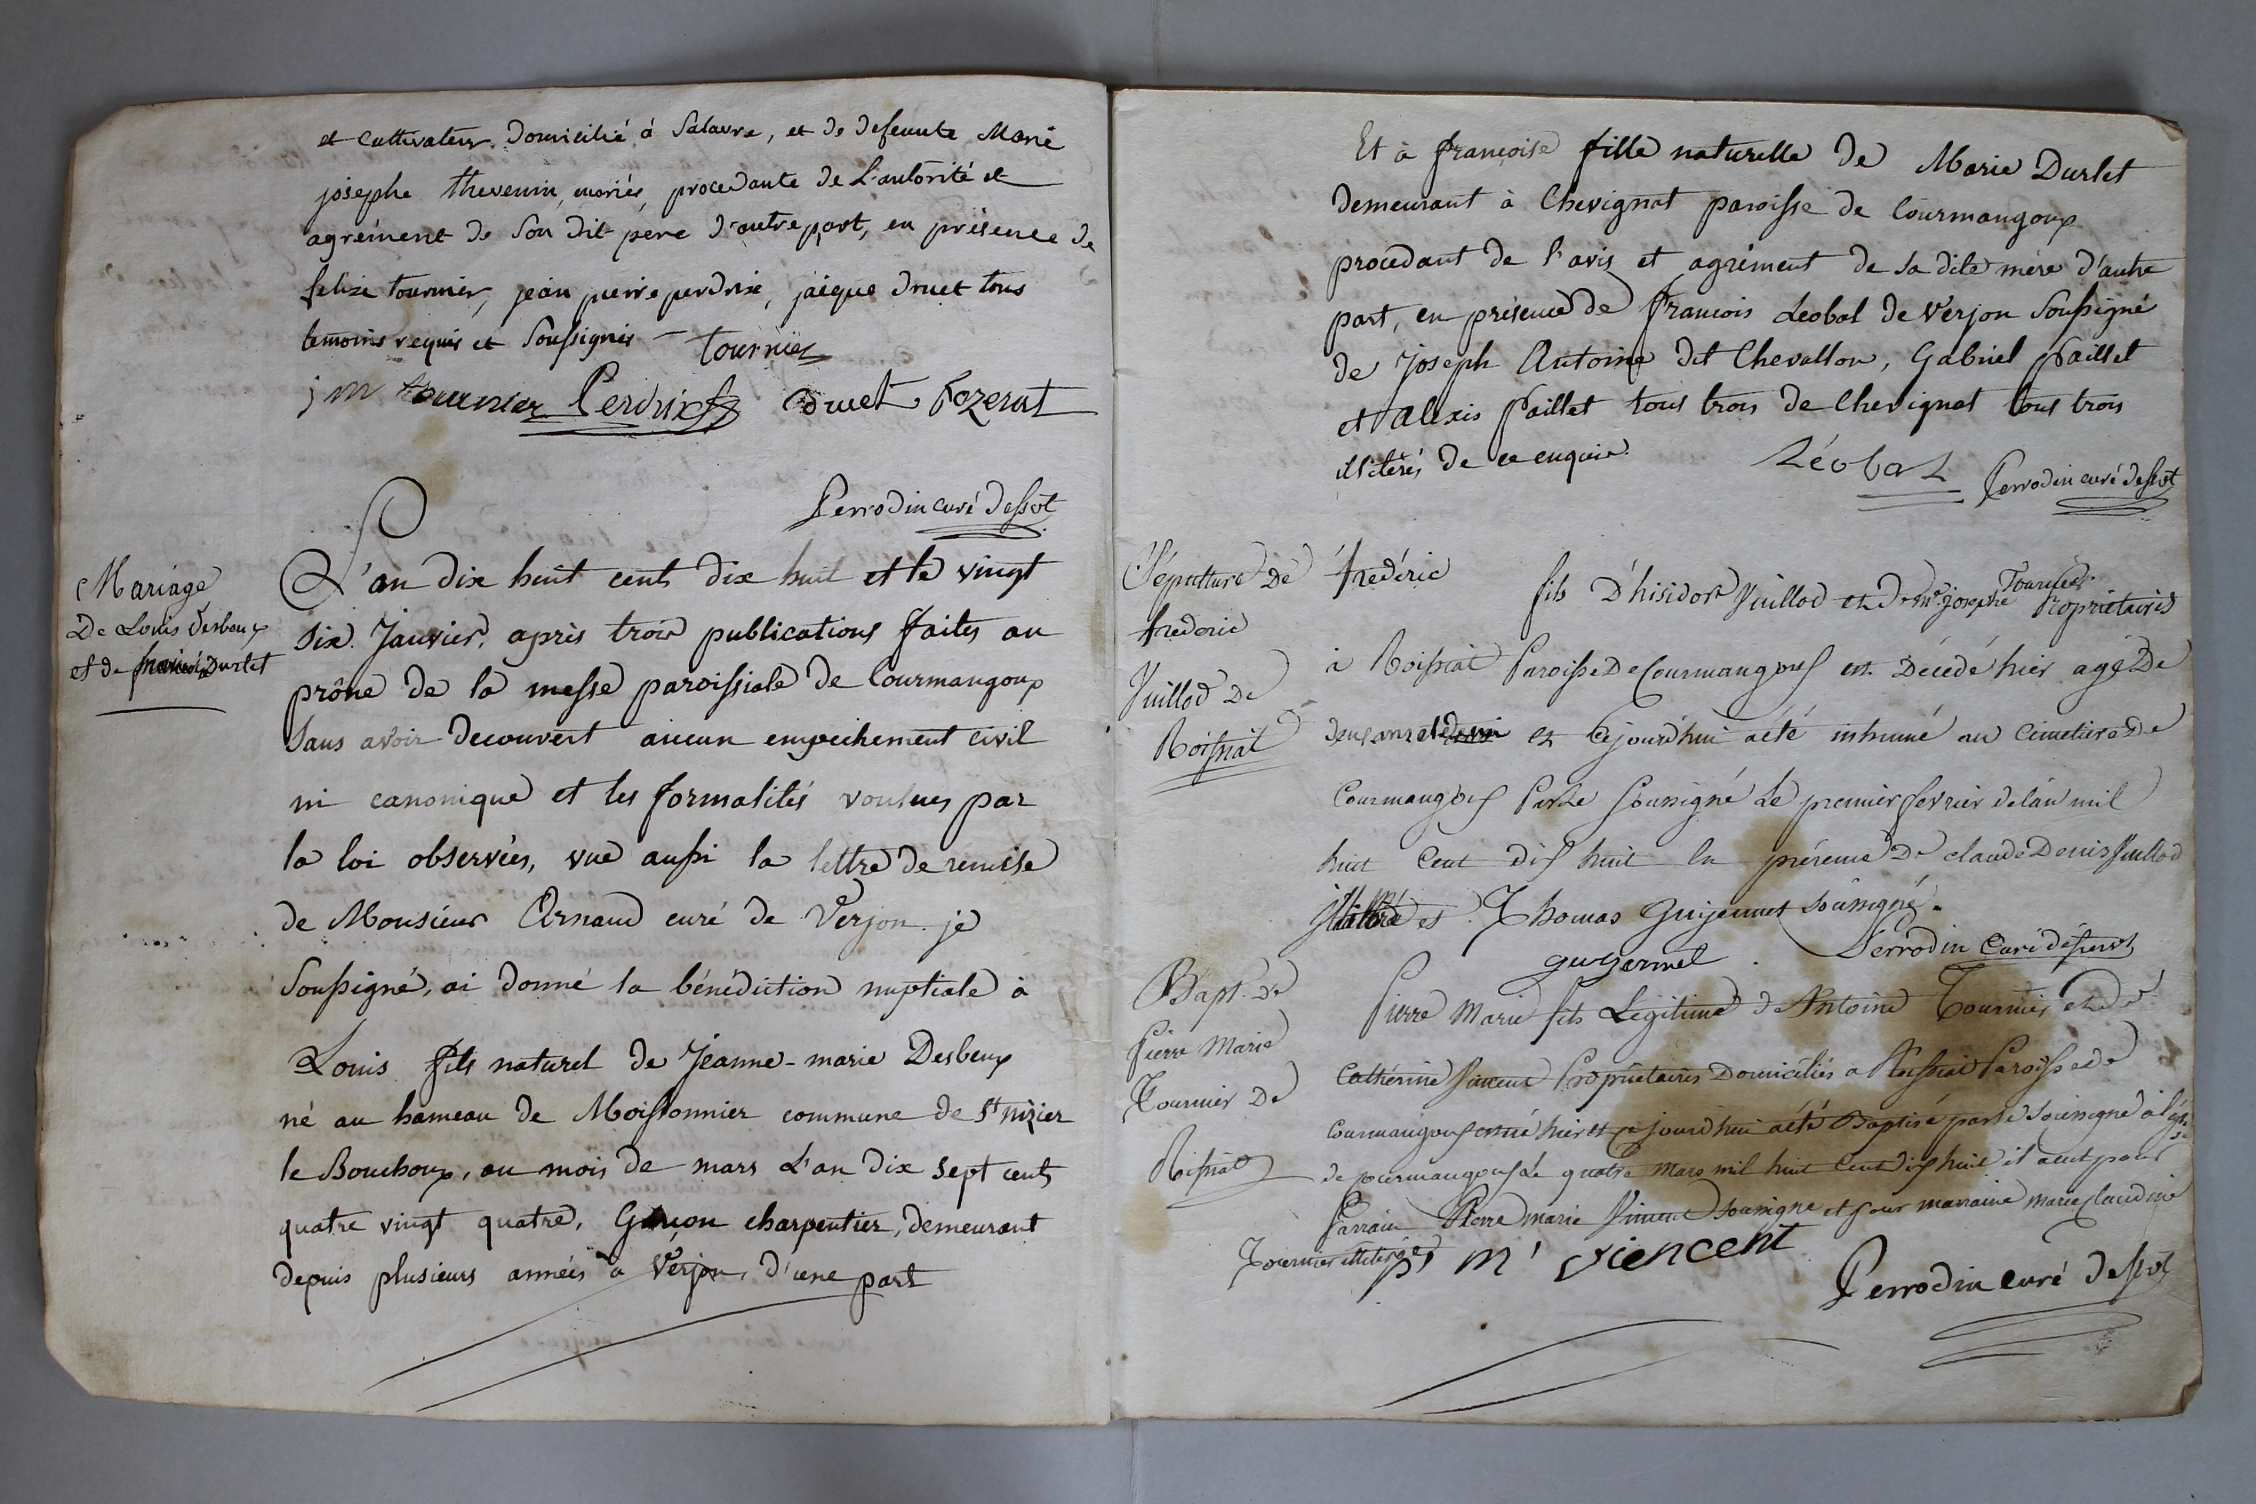 et cultivateur domicilié à Salavre, et de defeunte Marie
josephe thevenin, mariés, procedante de L'autorité et
agrément de Son dit père d'autre part, en présence de
felize tournier, jean pierre perdrix, jacque druet tous
temoins requis et Soussignés - tournier
j m tournier Perdrix druet Fozerat
Perrodin curé dessvt
Mariage
De Louis Desbeux
et de françoise Durlet
L'an dix huit cents dix huit et le vingt
six Janvier, après trois publications faites au
prône de la messe paroissiale de Courmangoux
Sans avoir decouvert aucun empechement civil
ni canonique et les formalités voulues par
la loi observées, vue aussi la lettre de remise
de Monsieur Arnaud curé de Verjon je
Soussigné, ai donné la bénédiction nuptiale à
Louis fils naturel de Jeanne-marie Desbeux
né au hameau de Moissonnier commune de St nizier
le Bouchoux, au mois de mars L'an dix sept cents
quatre vingt quatre, Garçon charpentier, demeurant
depuis plusieurs années à Verjon, d'une part
Et à françoise fille naturelle de Marie Durlet
demeurant à Chevignat paroisse de Courmangoux
procedant de l'avis et agrément de sa dite mère d'autre
part, en présence de François Léobal de Verjon Soussigné
de Joseph Antoine dit Chevallon, Gabriel Paillet
et Alexis Paillet tous trois de Chevignat tous trois
illiterés de ce enquis.
Léobal Perrodin curé dessvt
Sépulture de
frederic
Vuillod de
Roissiat
frédéric fils D'hisidore Vuillod et de Me josephe Tournier Propriétaires
à Roissiat Paroisse De Courmangoux est Décédé hier agé De
deux ans et demi et Cejourd'hui a été inhumé au Cimetière de
Courmangoux Par le Soussigné Le premier fevrier de l'an mil
huit Cent dix huit en présence De claude Denis Vuillod
illitéré et Thomas Guijeunet soussigné.
guygermel Perrodin Curé dessusvt
Bapt. de
Pierre Marie
Tournier De
Roissiat
Pierre Marie fils Legitime de Antoine Tournier et de
Catherine Vincent Propriétaires Domiciliés a Roissiat Paroisse de
courmangoux est né hier et cejourd'hui a été Baptisé par le Soussigné à l'églse
de courmangoux Le quatre mars mil huit Cent dix huit il a eut pour
Parrain Pierre marie Vincent soussigné et pour marraine marie Claudine
Tournier illiterée
p' m' viencent
Perrodin curé dessvt